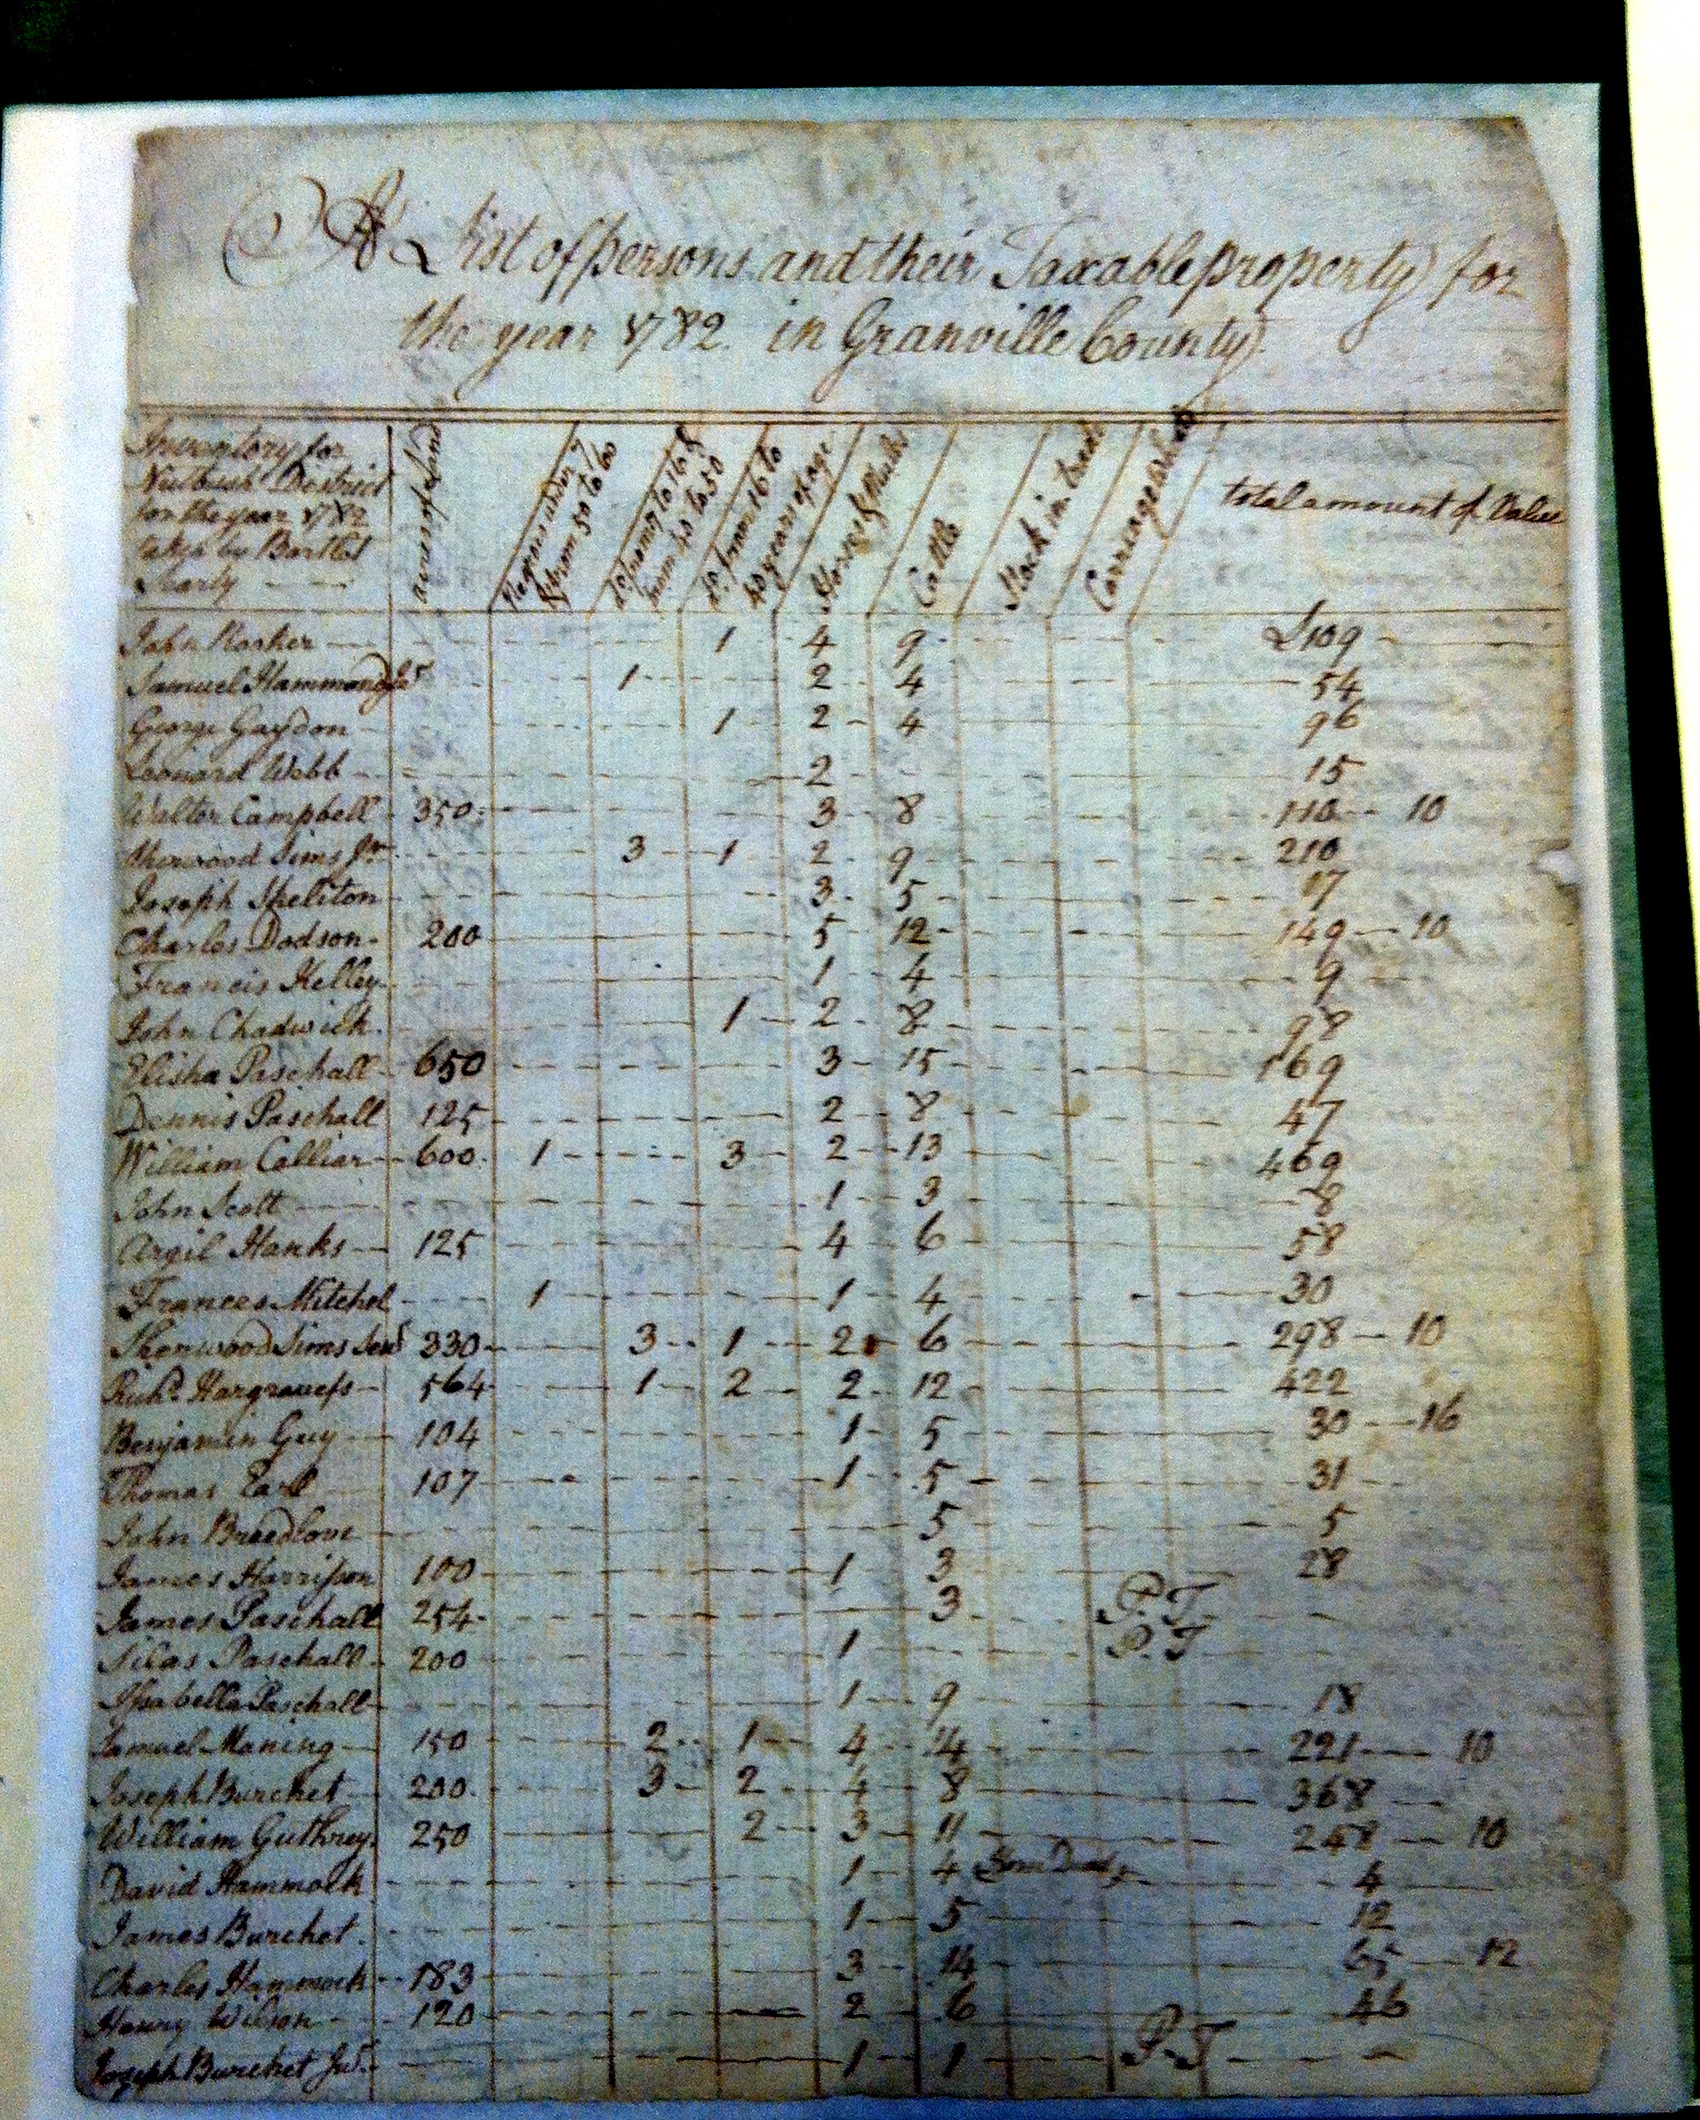 A List of persons and their Taxable property for
the year 1782. in Granville County.
Inventory for
Nutbush District
for the year 1782
taken by Bartlet
Searly
acres of land
Negroes under 7
& from 50 to 60
do. from 7 to 16 &
from 40 to 50
do. from 16 to
40 years of age
Horses & Mules
Cattle
Stock in trade
Carriage Wheels
total amount of Value
John Rosher 1 4 9 £109
Samuel Hammond Jr 1 2 4 54
George Gaydon 1 2 4 96
Leonard Webb 2 15
Walter Campbell 350 3 8 110 10
Sherwood Sims Jnr 3 1 2 9 210
Joseph Skeliton 3 5 17
Charles Dodson 200 5 12 149 10
Francis Kelley 1 4 9
John Chadwick 1 2 8 98
Elisha Paschall 650 3 15 169
Dennis Paschall 125 2 8 47
William Calliar 600 1 3 2 13 469
John Scott 1 3 8
Argil Hanks 125 4 6 58
Frances Mitchel 1 1 4 30
Sherwood Sims Senr 330 3 1 2 6 298 10
Richd. Hargravess 564 1 2 2 12 422
Benjamin Guy 104 1 5 30 16
Thomas Earl 107 1 5 31
John Breedlove 5 5
James Harrisson 100 1 3 28
James Paschall 254 3 P. T
Silas Paschall 200 1 P. T
Issabella Paschall 1 9 18
Samuel Maning 150 2 1 4 14 221 10
Joseph Burchet 200 3 2 4 8 368
William Guthrey 250 2 3 11 248 10
David Hammock 1 4 4
James Burchet 1 5 12
Charles Hammock 183 3 14 65 12
Henry Wilson 120 2 6 46
Joseph Burchet Jur. 1 1 P. T